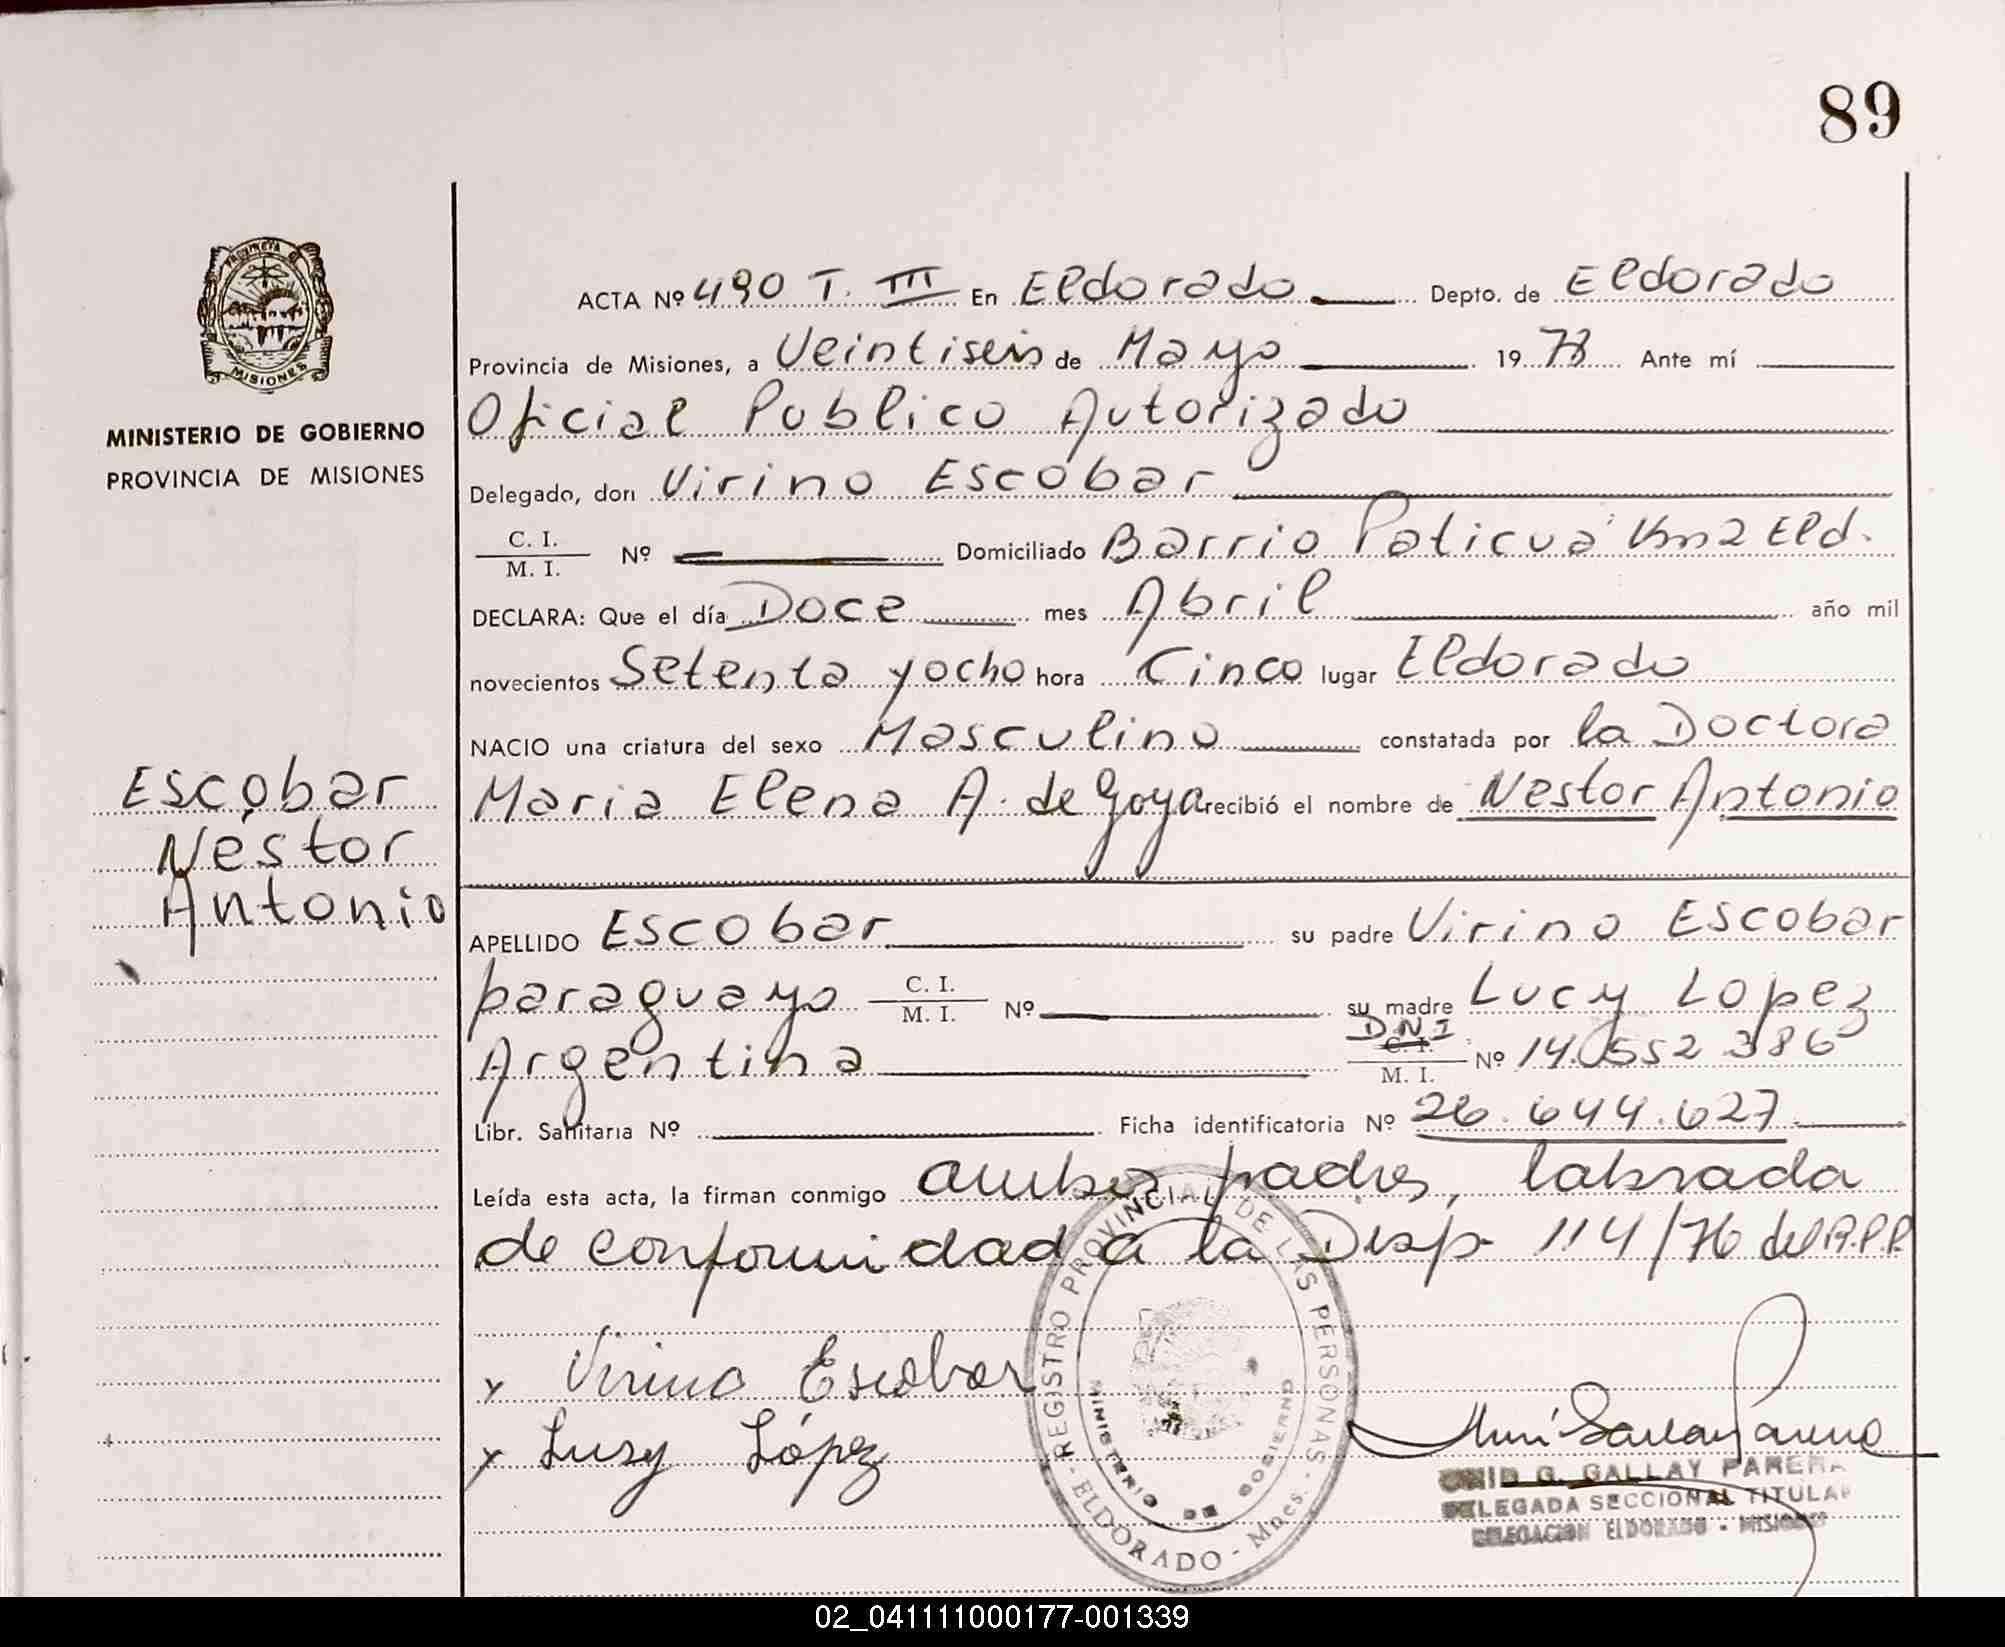 89
PROVINCIA
MISIONES
MINISTERIO DE GOBIERNO
PROVINCIA DE MISIONES
Escobar
Néstor
Antonio
ACTA Nº 490 T. III En Eldorado Depto. de Eldorado
Provincia de Misiones, a Veintiseis de Mayo 1978 Ante mí
Oficial Publico Autorizado
Delegado, don Virino Escobar
C. I.
M. I. Nº Domiciliado Barrio Paticuá Km 2 Eld.
DECLARA: Que el día Doce mes Abril año mil
novecientos Setenta y ocho hora Cinco lugar Eldorado
NACIO una criatura del sexo Masculino constatada por la Doctora
Maria Elena A. de Goya recibió el nombre de Nestor Antonio
APELLIDO Escobar su padre Virino Escobar
paraguayo C. I. M. I. Nº su madre Lucy Lopez
Argentina DNI C. I. M. I. Nº 14.552.386
Libr. Sanitaria Nº Ficha identificatoria Nº 26.644.627
Leída esta acta, la firman conmigo ambos padres, labrada
de conformidad a la Disp. 114/76 del R.P.P.
x Virino Escobar
x Lusy López
REGISTRO PROVINCIAL DE LAS PERSONAS - ELDORADO - Mnes.
MINISTERIO DE GOBIERNO
G. GALLAY PARERA
DELEGADA SECCIONAL TITULAR
DELEGACION ELDORADO - MISIONES
02_041111000177-001339